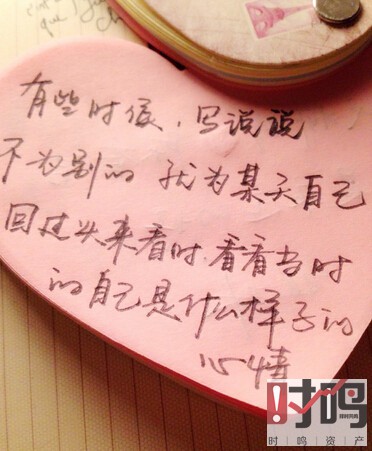 有些时候，写说说
不为别的 就为某天自己
回过头来看时.看看当时
的自己是什么样子的
心情
时鸣
时鸣资产